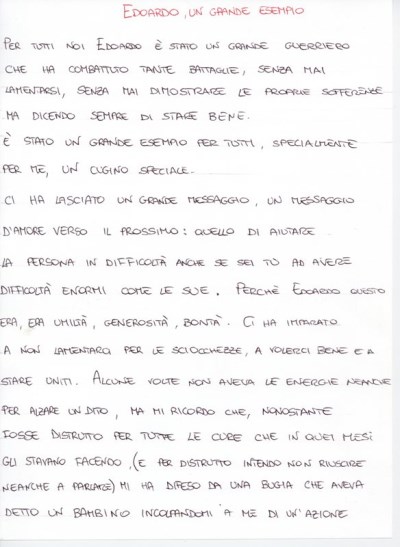 EDOARDO, UN GRANDE ESEMPIO
PER TUTTI NOI EDOARDO È STATO UN GRANDE GUERRIERO
CHE HA COMBATTUTO TANTE BATTAGLIE, SENZA MAI
LAMENTARSI, SENZA MAI DIMOSTRARE LE PROPRIE SOFFERENZE
MA DICENDO SEMPRE DI STARE BENE.
È STATO UN GRANDE ESEMPIO PER TUTTI, SPECIALMENTE
PER ME, UN CUGINO SPECIALE.
CI HA LASCIATO UN GRANDE MESSAGGIO, UN MESSAGGIO
D'AMORE VERSO IL PROSSIMO: QUELLO DI AIUTARE
LA PERSONA IN DIFFICOLTÀ ANCHE SE SEI TU AD AVERE
DIFFICOLTÀ ENORMI COME LE SUE. PERCHÈ EDOARDO QUESTO
ERA, ERA UMILTÀ, GENEROSITÀ, BONTÀ. CI HA IMPARATO
A NON LAMENTARCI PER LE SCIOCCHEZZE, A VOLERCI BENE E A
STARE UNITI. ALCUNE VOLTE NON AVEVA LE ENERGIE NEANCHE
PER ALZARE UN DITO, MA MI RICORDO CHE, NONOSTANTE
FOSSE DISTRUTTO PER TUTTE LE CURE CHE IN QUEI MESI
GLI STAVANO FACENDO, (E PER DISTRUTTO INTENDO NON RIUSCIRE
NEANCHE A PARLARE) MI HA DIFESO DA UNA BUGIA CHE AVEVA
DETTO UN BAMBINO INCOLPANDOMI A ME DI UN'AZIONE